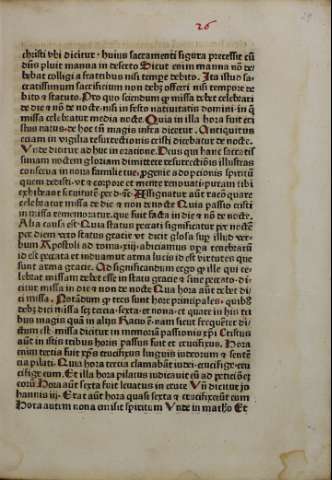 26
christi vbi dicitur. huius sacramenti figura precessit cū
dn̄s pluit manna in deserto Sicut enim manna nō de/
bebat colligi a fratribus nisi tempore debito. Ita istud sa/
cratissimum sacrificium non debʒ offerri nisi tempore de
bito ⁊ statuto. Pro quo sciendum ꝙ missa debet celebrari
de die ⁊ nō de nocte. nisi in festo natiuitatis domini. in q̄
missa celebratur media nocte. Quia in illa hora fuit cri
stus natus. de hoc tn̄ magis infra dicetur. Antiquitus
eciam in vigilia resurrectionis cristi dicebatur de nocte.
Vnde dicitur adhuc in oracione. Deus qui hanc sacratis
simam noctem gloriam dominice resurrectiōis illustras
conserua in noua familie tue. ꝓgenie adopcionis spiritū
quem dedisti. vt ⁊ corpore et mente renouati. puram tibi
exhibeant seruitutē per d. ⁊. Assignatur aūt racō quare
celebratur missa de die ⁊ non de nocte Quia passio cristi
in missa rememoratur. que fuit facta in die ⁊ nō de nocte.
Alia causa est. Quia status peccati significatur per noctē
per diem vero status gracie vt dicit glosa sup̄ illud ver/
bum Apostoli ad roma. xiij. abiciamus opa tenebrarū
id est peccata et induamur arma lucis id est virtutes que
sunt arma gracie. Ad significandum ergo ꝙ ille qui ce/
lebrat missam debet esse in statu gracie ⁊ sine peccato. di/
citur missa in die ⁊ non de nocte Qua hora aūt debet di/
ci missa. Notādum ꝙ tres sunt hore principales. quibʒ
debʒ dici missa scʒ tercia. sexta. et nona. et quare in his tri
bus magis quā in alijs Racio ē. nam sicut frequēter di/
ctum est. missa dicitur in memoriā passionis xp̄i Cristus
aūt in istis tribus horis passus fuit et crucifixus. Hora
enim tercia fuit xp̄us crucifixus linguis iudeorum ⁊ sentē
cia pilati. Quia hora tercia clamabāt iudei. crucifige. cru
cifige eum. Et illa hora pilatus iudicauit eū ad peticōeʒ e
orū Hora aūt sexta fuit leuatus in cruce Vn̄ dicitur jo
hannis iij. Erat aūt hora quasi sexta ⁊ crucifixerūt eum
Hora autem nona emisit spiritum Vnde in mathʒo Et